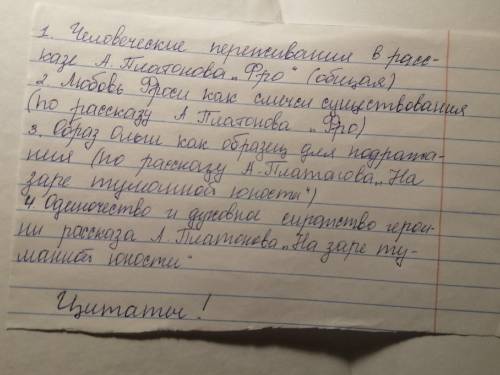 1. Человеческие переживания в расс-
казе А. Платонова „Фро“ (общая)
2 Любовь Фроси как смысл существования
(по рассказу А Платонова „Фро)
3. Образ Ольги как образец для подража-
ния (по рассказу А. Платонова „На
заре туманной юности“)
4 Одиночество и духовное сиротство герои-
ни рассказа А. Платонова „На заре ту-
манной юности“
Цитаты!